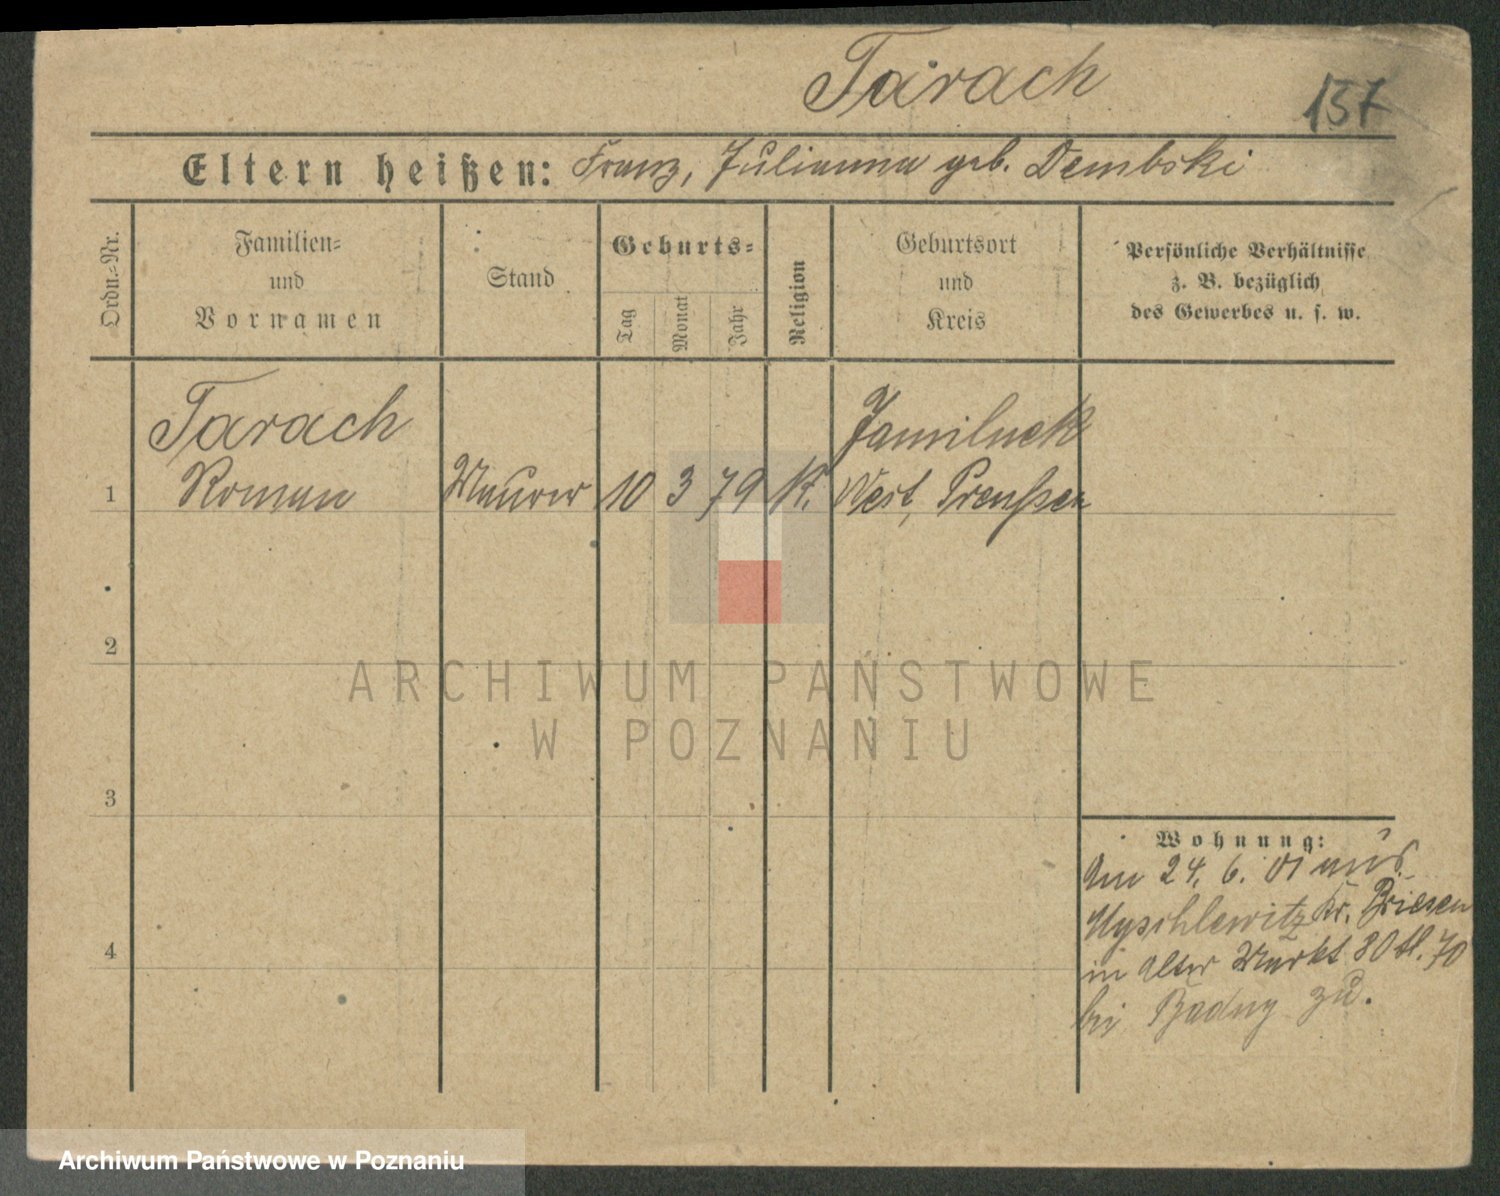 Tarach
137
Eltern heißen: Franz, Julianna geb. Dembski
Ordn.-Nr.
Familien-
und
Vornamen
Stand
Geburts-
Tag
Monat
Jahr
Religion
Geburtsort
und
Kreis
Persönliche Verhältnisse
z. B. bezüglich
des Gewerbes u. s. w.
Tarach
Roman
1
Maurer
10 3 79
K.
Jamilnek
West, Preußen
2
3
4
Wohnung:
Am 24. 6. 01 aus
Myschlewitz Kr. Briesen
in Alter Markt 80
bei zu.
ARCHIWUM PAŃSTWOWE
W POZNANIU
Archiwum Państwowe w Poznaniu